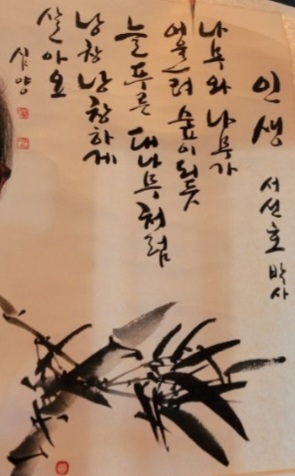 인생
서선호 박사
나무와 나무가
어울려 숲이 되듯
늘 푸른 대나무처럼
낭창낭창하게
살아요
심양